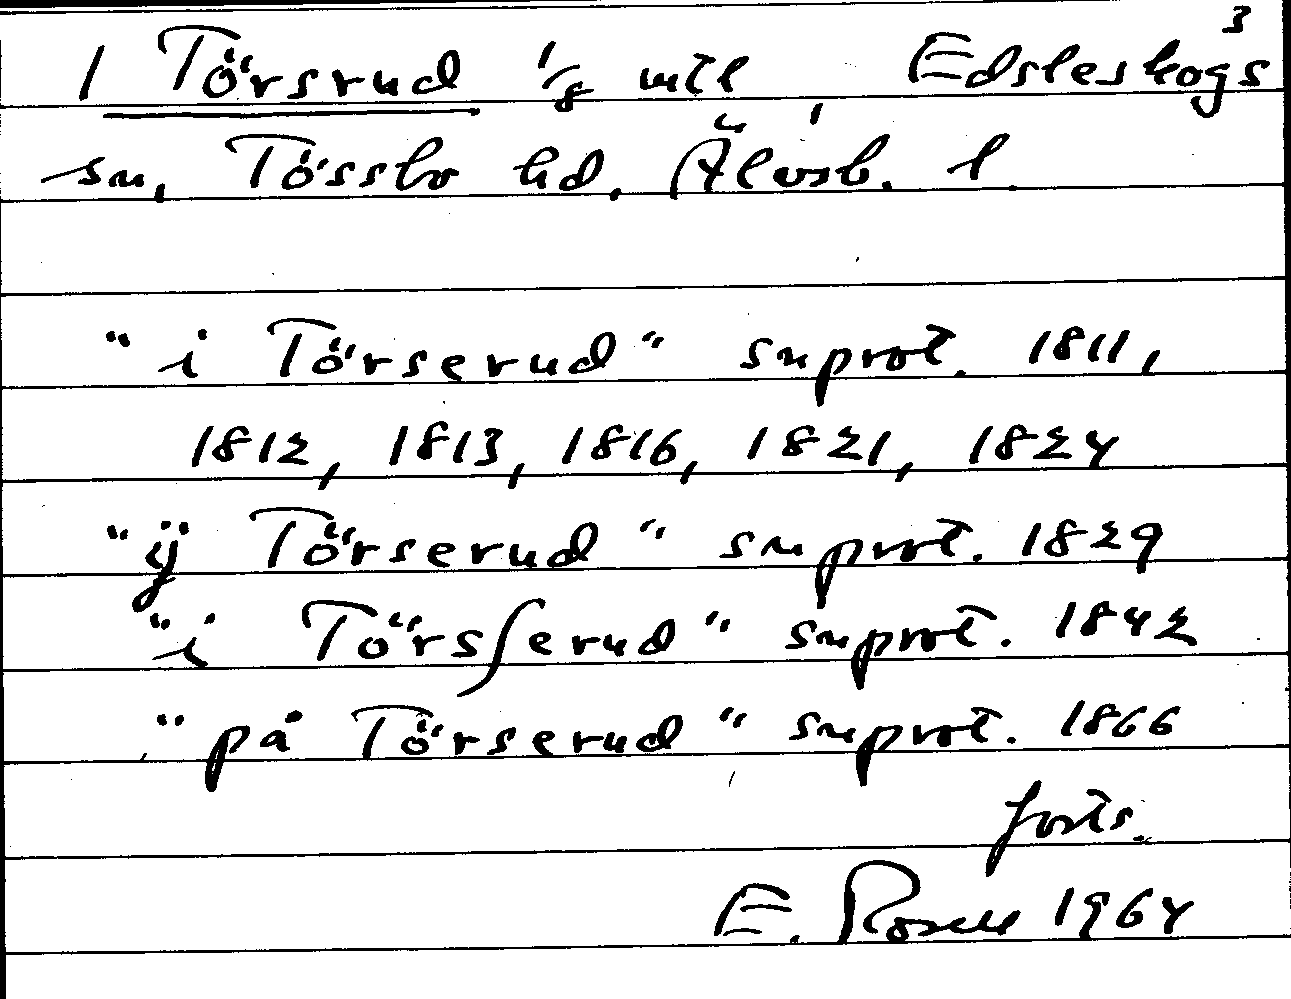 3
1 Törsrud 1/8 mtl, Edsleskogs
sn, Tössbo hd. Älvsb. l.
"i Törserud" snprot. 1811,
1812, 1813, 1816, 1821, 1824
"ÿ Törserud" snprot. 1829
"i Törsſerud" snprot. 1842
"på Törserud" snprot. 1866
forts.
E. Rosell 1964